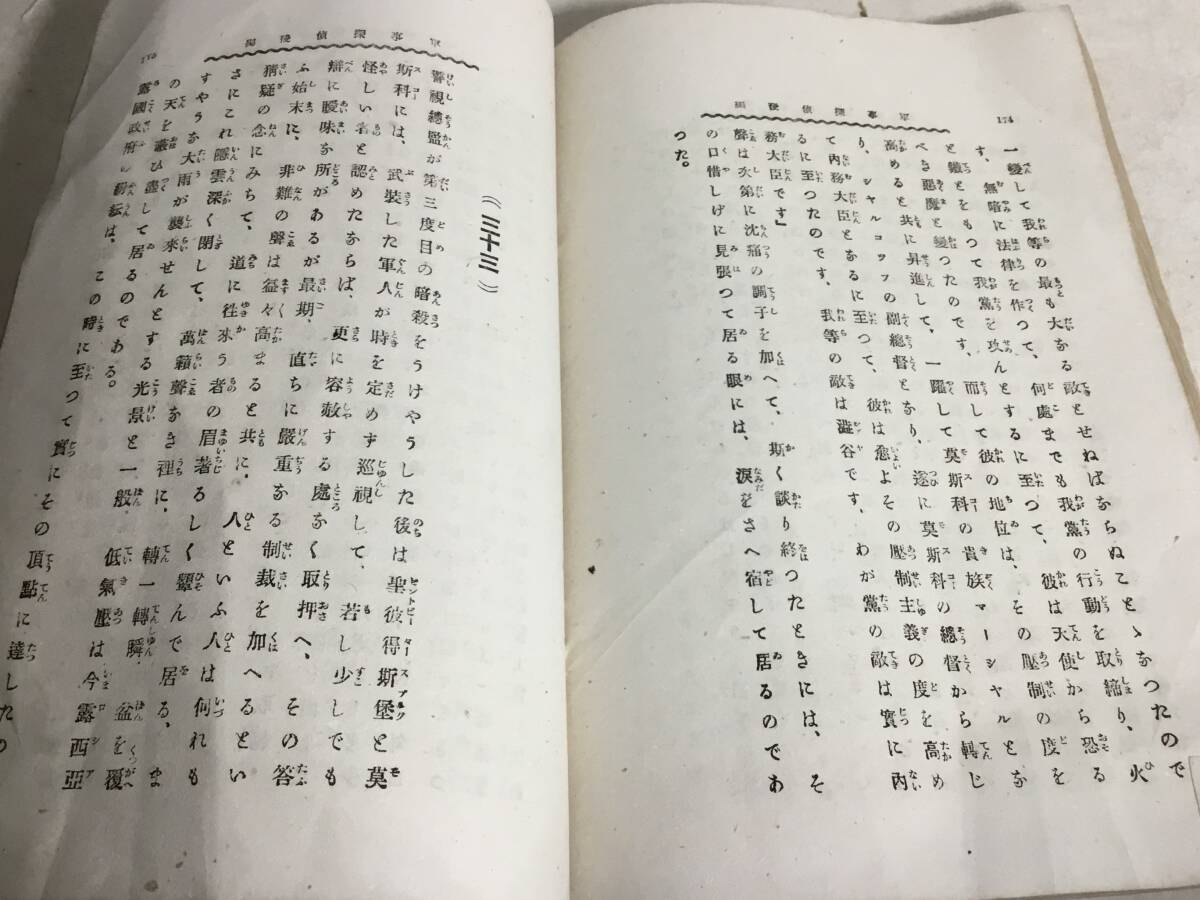 174
軍事探偵殘陽
一變して我等の最も大なる敵とせねばならぬことゝなつたので
す、無暗に法律を作つて、何處までも我黨の行動を取締り、火
と鎗とをもつて我黨を攻んとするに至つて、彼は天使から恐る
べき惡魔と變つたのです、而して彼の地位は、その壓制の度を
高めると共に昇進して、一躍して莫斯科の貴族マーシャルとな
り、シャルコッフの副總督となり、遂に莫斯科の總督から轉じ
て内務大臣となるに至つて、彼は愈よその壓制主義の度を高め
るに至つたのです、我等の敵は澁谷です、わが黨の敵は實に内
務大臣です」
聲は次第に沈痛の調子を加へて、斯く談り終つたときには、そ
の口惜しげに見張つて居る眼には、涙をさへ宿して居るのであ
つた。
軍事探偵殘陽
175
(三十三)
警視總監が第三度目の暗殺をうけやうした後は聖彼得斯堡と莫
斯科には、武裝した軍人が時を定めず巡視して、若し少しでも
怪しい者と認めたならば、更に容赦する處なく取押へ、その答
辯に曖昧な所があるが最期、直ちに嚴重なる制裁を加へるとい
ふ始末に、非難の聲は益々高まると共に、人といふ人は何れも
猜疑の念にみちて、道に徃來う者の眉著るしく顰んで居る、ま
さにこれ隱雲深く閉して、萬籟聲なき裡に、一轉瞬盆を覆へ
すやうな大雨が襲來せんとする光景と一般、低氣壓は今露西亞
の天を蔽ひ盡して居るのである。
露國政府の紛紜は、この時に至つて實にその頂點に達したの